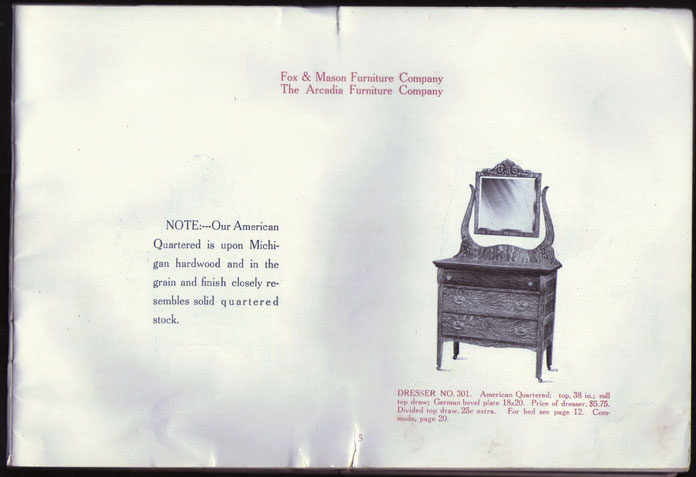 Fox & Mason Furniture Company
The Arcadia Furniture Company
NOTE:---Our American
Quartered is upon Michi-
gan hardwood and in the
grain and finish closely re-
sembles solid quartered
stock.
DRESSER NO. 301. American Quartered; top, 38 in.; roll
top draw; German bevel plate 18x20. Price of dresser, $5.75.
Divided top draw, 25c extra. For bed see page 12. Com-
mode, page 20.
5